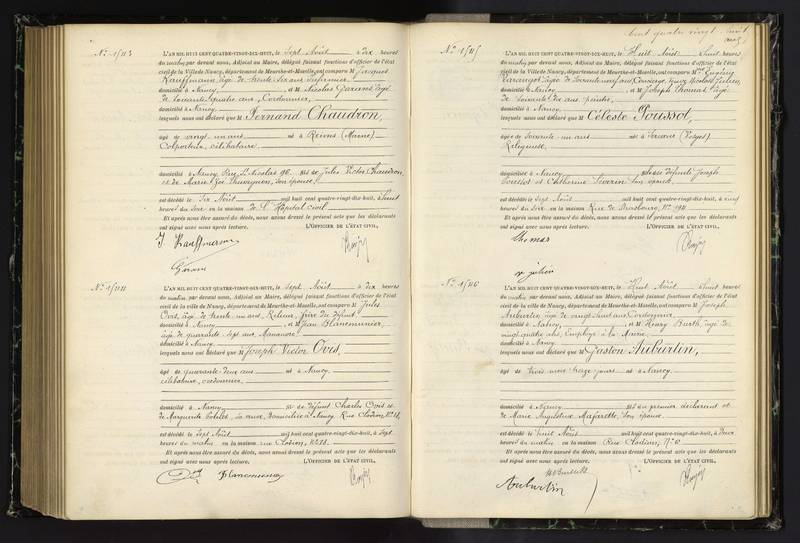 L'AN MIL HUIT CENT QUATRE-VINGT-DIX-HUIT, le Sept Août à dix heures
du matin par devant nous, Adjoint au Maire, délégué faisant fonctions d'officier de l'état
civil de la Ville de Nancy, département de Meurthe-et-Moselle, ont comparu M Jacques
Kauffmann, âgé de trente six ans, Infirmier,
domicilié à Nancy, et M Nicolas Garans, âgé
de soixante quatre ans, Cordonnier,
domicilié à Nancy,
lesquels nous ont déclaré que M Fernand Chaudron,
âgé de vingt un ans né à Reims (Marne)
Colporteur, célibataire
domicilié à Nancy, Rue St Nicolas 96, fils de Jules Victor Chaudron,
et de Marie son épouse,
est décédé le Six Août mil huit cent quatre-vingt-dix-huit, à huit
heures du soir en la maison de l'Hôpital civil
Et après nous être assuré du décès, nous avons dressé le présent acte que les déclarants
ont signé avec nous après lecture. L'OFFICIER DE L'ÉTAT CIVIL,
J. Kauffmann
L'AN MIL HUIT CENT QUATRE-VINGT-DIX-HUIT, le Sept Août à dix heures
du matin, par devant nous, Adjoint au Maire, délégué faisant fonctions d'officier de l'état
civil de la ville de Nancy, département de Meurthe-et-Moselle, ont comparu M Jules
Oris, âgé de trente un ans, Relieur, frère du défunt
domicilié à Nancy, et M Jean Blancmunier,
âgé de quarante sept ans, Manœuvre
domicilié à Nancy
lesquels nous ont déclaré que M Joseph Victor Oris,
âgé de quarante deux ans né à Nancy
célibataire, cordonnier
domicilié à Nancy fils de défunt Charles Oris et
de Marguerite sa veuve, domiciliée à Nancy Rue Clodion, N° 18,
est décédé le Sept Août mil huit cent quatre-vingt-dix-huit, à Sept
heures du matin en la maison rue Clodion, N° 18
Et après nous être assuré du décès, nous avons dressé le présent acte que les déclarants
ont signé avec nous après lecture. L'OFFICIER DE L'ÉTAT CIVIL,
Cent quatre vingt huit
L'AN MIL HUIT CENT QUATRE-VINGT-DIX-HUIT, le Huit Août, à huit heures
du matin par devant nous, Adjoint au Maire, délégué faisant fonctions d'officier de l'état
civil de la Ville de Nancy, département de Meurthe-et-Moselle, ont comparu Mme Eugénie
âgée de Soixante neuf ans, Concierge, veuve Nicolas Julien,
domiciliée à Nancy, et M Joseph Thomas, âgé
de soixante dix ans, peintre,
domicilié à Nancy
lesquels nous ont déclaré que M Céleste Poussot,
âgée de soixante un ans née à (Vosges)
Religieuse,
domiciliée à Nancy, fille des défunts Joseph
Poussot et Catherine son épouse
est décédée le Sept Août mil huit cent quatre-vingt-dix-huit, à cinq
heures du soir en la maison Rue de Strasbourg, N° 194
Et après nous être assuré du décès, nous avons dressé le présent acte que les déclarants
ont signé avec nous après lecture. L'OFFICIER DE L'ÉTAT CIVIL,
Thomas
julien
L'AN MIL HUIT CENT QUATRE-VINGT-DIX-HUIT, le Huit Août, à huit heures
du matin par devant nous, Adjoint au Maire, délégué faisant fonctions d'officier de l'état
civil de la Ville de Nancy, département de Meurthe-et-Moselle, ont comparu M Joseph
Auburtin, âgé de vingt huit ans, Cordonnier
domicilié à Nancy, et M Henry Burth, âgé de
vingt quatre ans, Employé à la Mairie,
domicilié à Nancy
lesquels nous ont déclaré que M Gaston Auburtin,
âgé de trois mois treize jours né à Nancy
domicilié à Nancy fils du premier déclarant et
de Marie Angélique son épouse
est décédé le huit Août mil huit cent quatre-vingt-dix-huit, à Deux
heures du matin en la maison Rue Clodion, N° 6
Et après nous être assuré du décès, nous avons dressé le présent acte que les déclarants
ont signé avec nous après lecture. L'OFFICIER DE L'ÉTAT CIVIL,
Auburtin